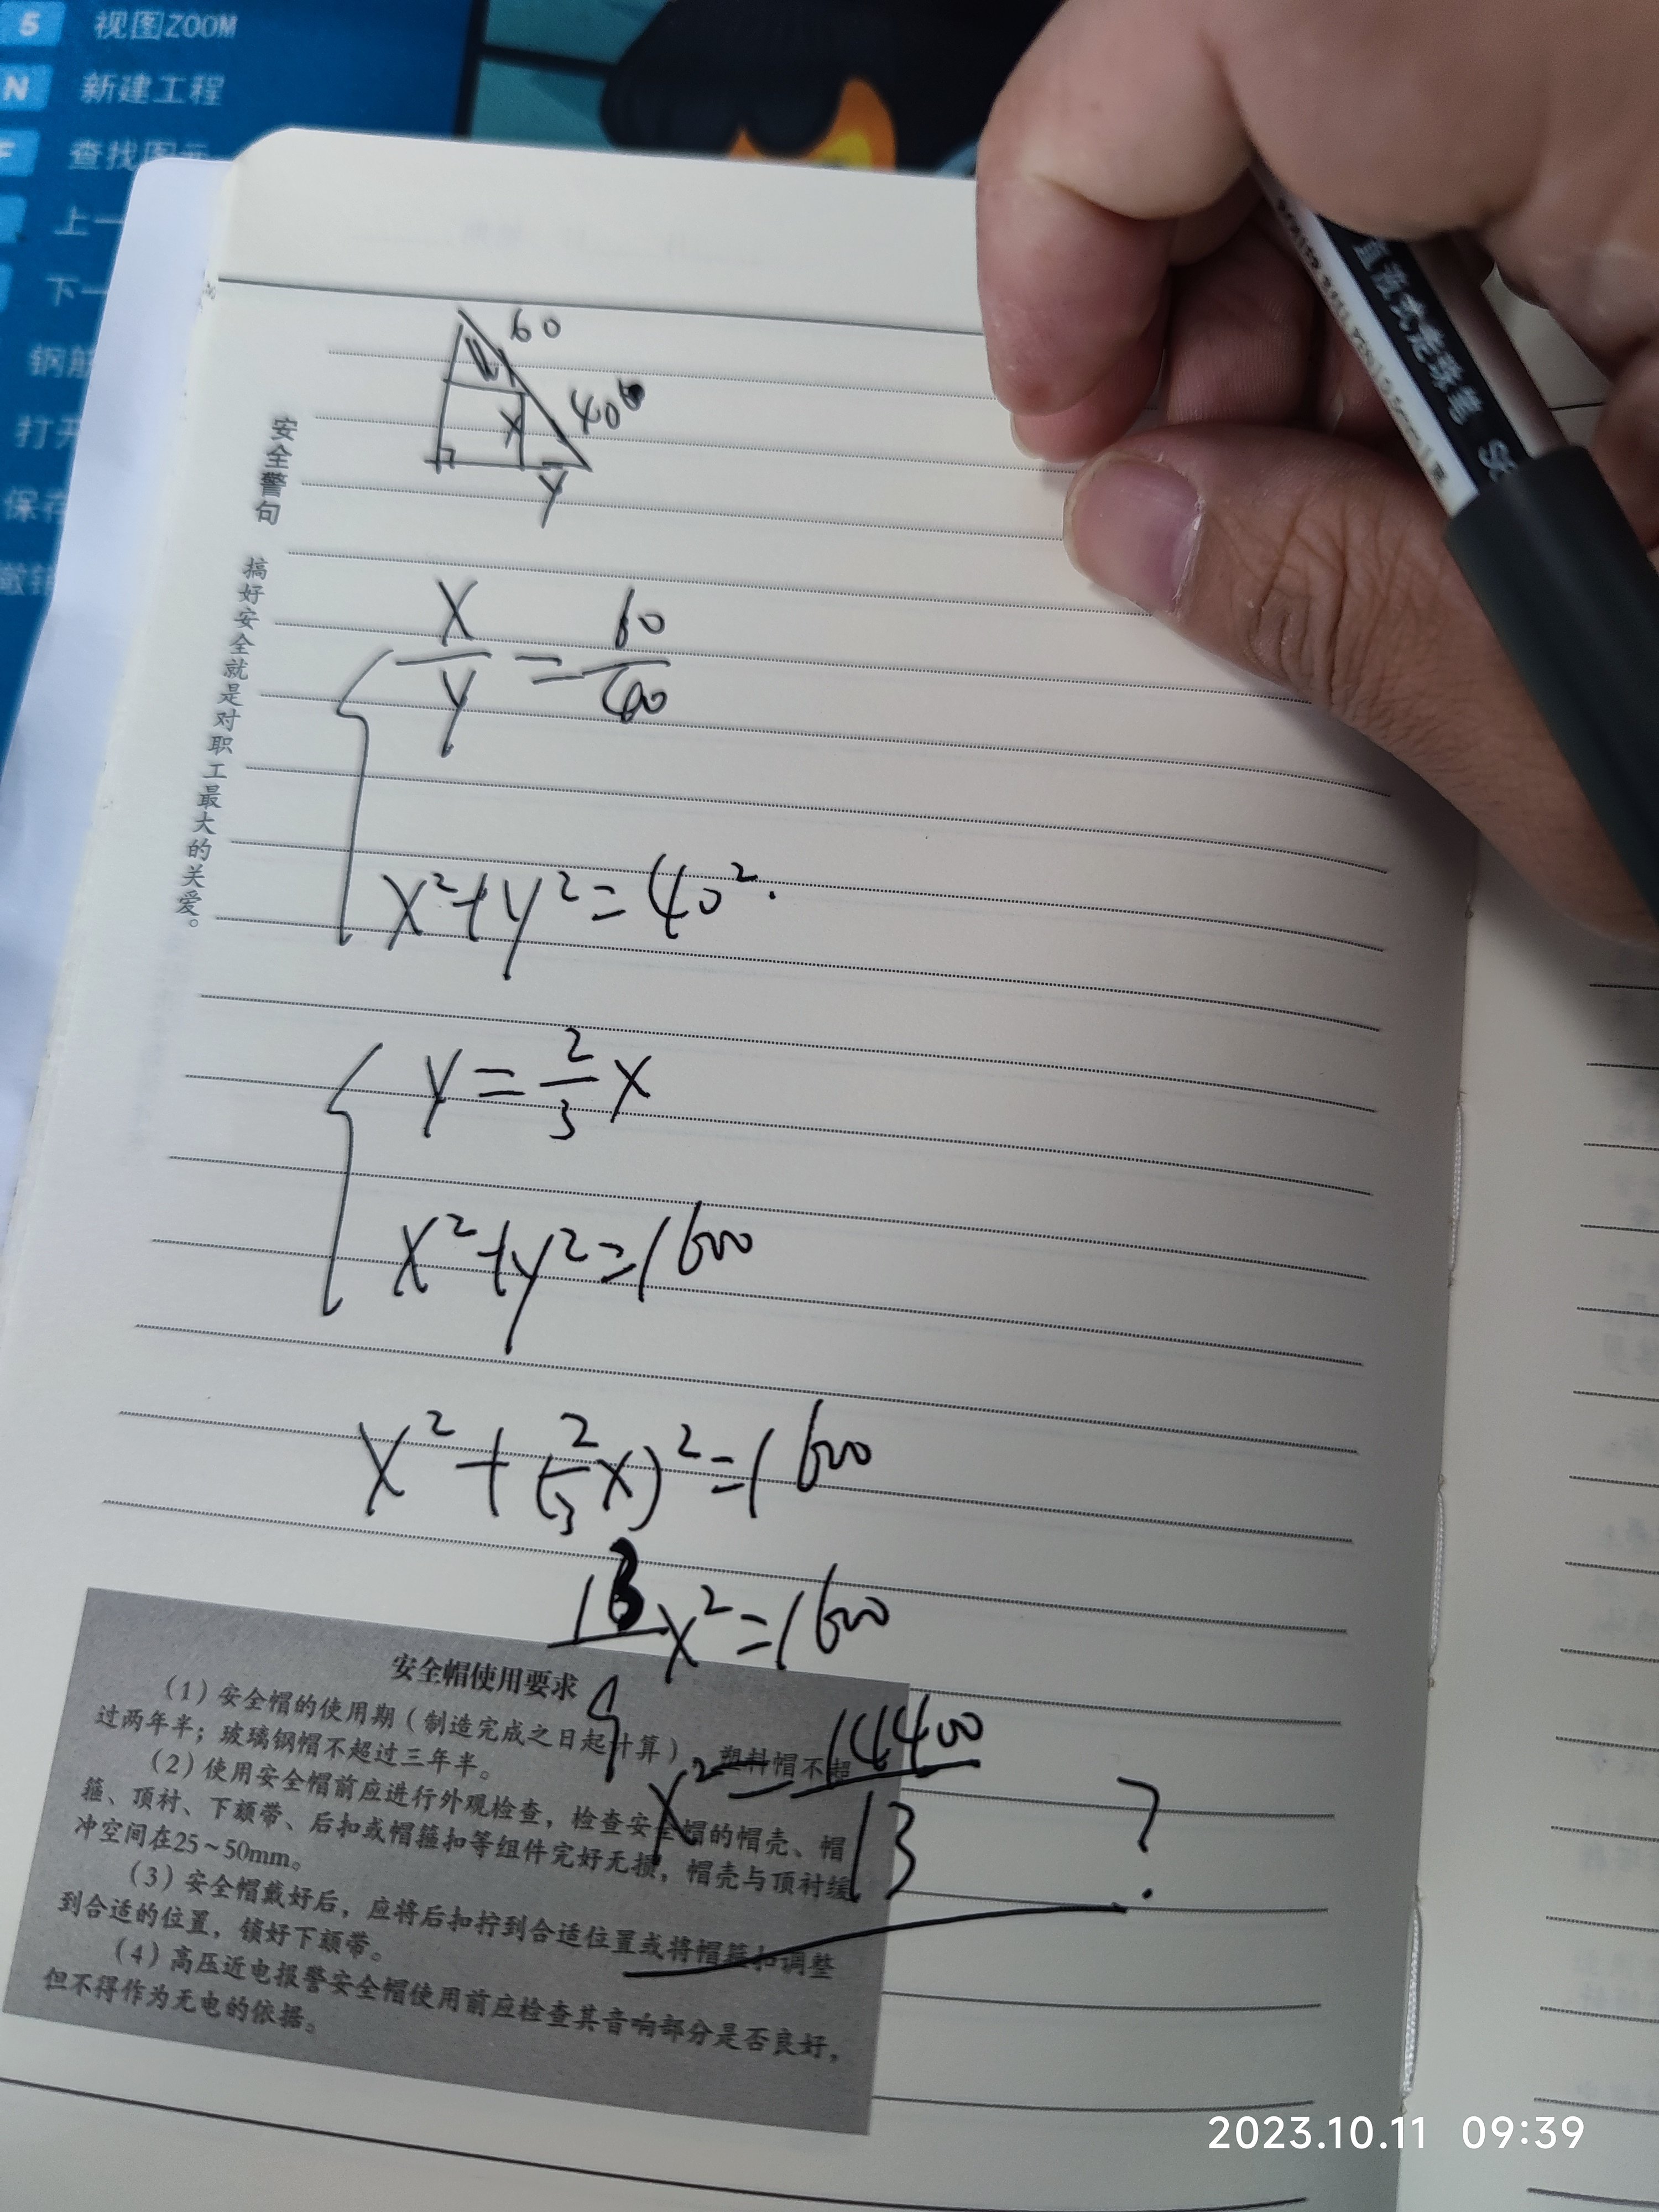 5 视图ZOOM
N 新建工程
F 查找图元
上一
下一
钢筋
打开
保存
撤销
安全警句 搞好安全就是对职工最大的关爱。
60
40
x
y
x/y = 60/40
x²+y²=40².
y = 2/3 x
x²+y²=1600
x²+(2/3 x)²=1600
13/9 x²=1600
x² = 14400/13 ?
安全帽使用要求
(1)安全帽的使用期(制造完成之日起计算),塑料帽不超
过两年半;玻璃钢帽不超过三年半。
(2)使用安全帽前应进行外观检查,检查安全帽的帽壳、帽
箍、顶衬、下颏带、后扣或帽箍扣等组件完好无损,帽壳与顶衬缓
冲空间在25~50mm。
(3)安全帽戴好后,应将后扣拧到合适位置或将帽箍扣调整
到合适的位置,锁好下颏带。
(4)高压近电报警安全帽使用前应检查其音响部分是否良好,
但不得作为无电的依据。
直液式走珠笔
2023.10.11 09:39